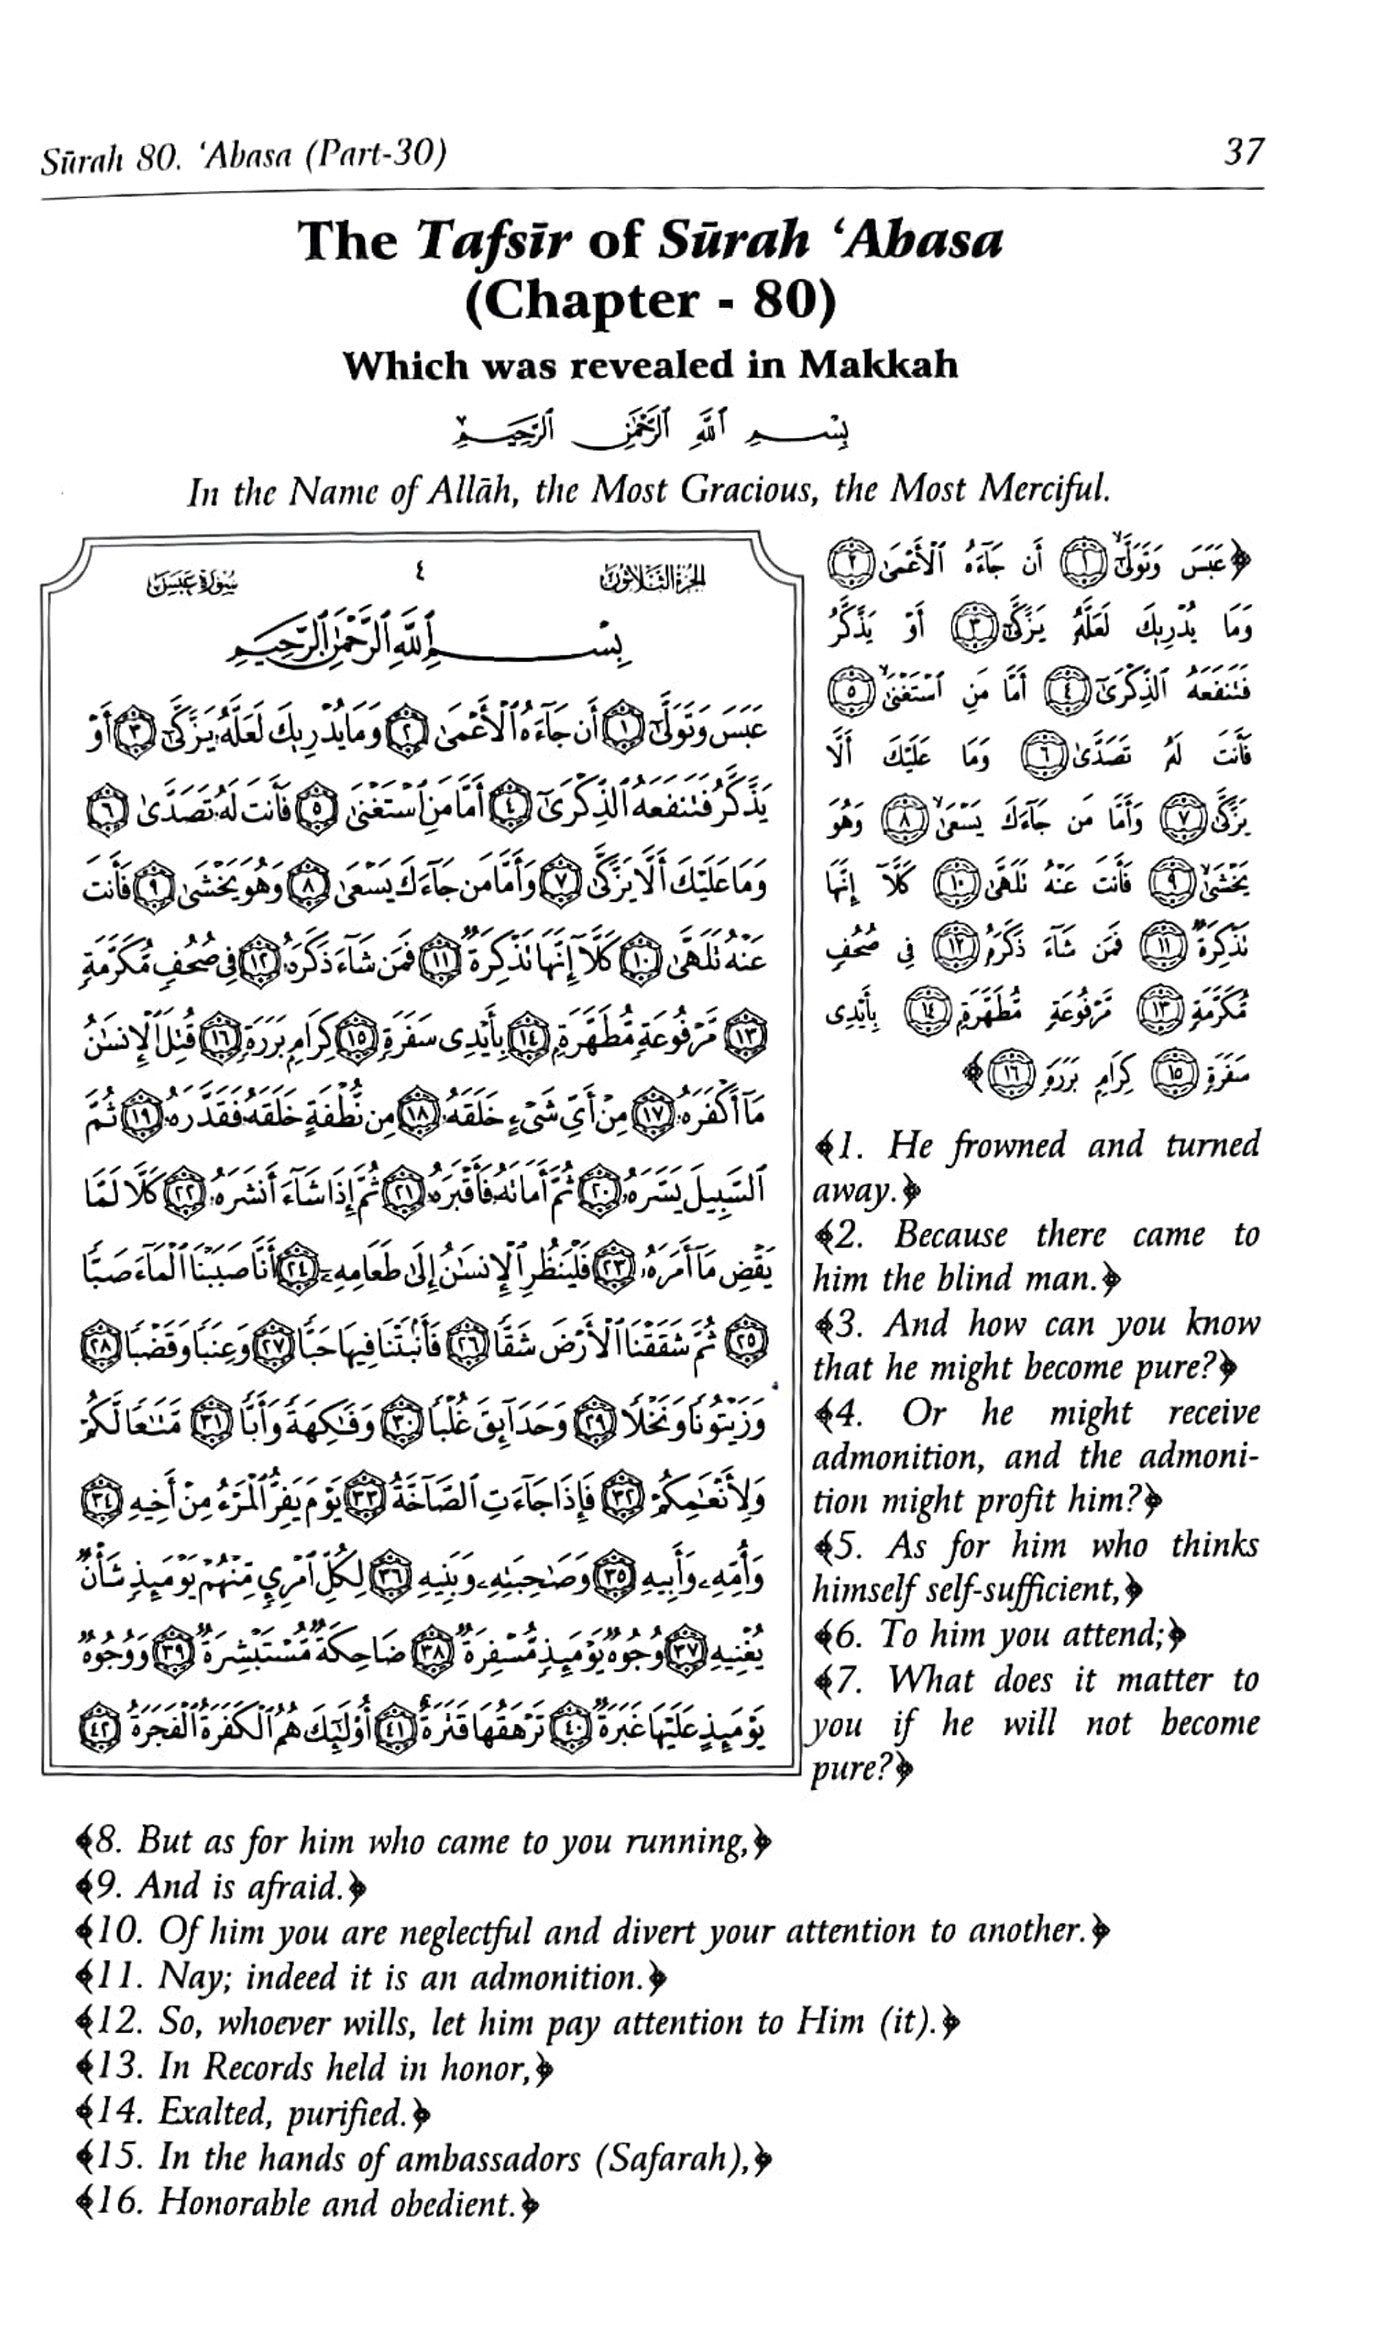 Sūrah 80. ‘Abasa (Part-30) 37
The Tafsīr of Sūrah ‘Abasa
(Chapter - 80)
Which was revealed in Makkah
بِسْمِ ٱللَّهِ ٱلرَّحْمَٰنِ ٱلرَّحِيمِ
In the Name of Allāh, the Most Gracious, the Most Merciful.
سُورَةُ عَبَسَ ٤ الجُزءُ الثَّلَاثُونَ
بِسْمِ ٱللَّهِ ٱلرَّحْمَٰنِ ٱلرَّحِيمِ
عَبَسَ وَتَوَلَّىٰٓ ١ أَن جَآءَهُ ٱلْأَعْمَىٰ ٢ وَمَا يُدْرِيكَ لَعَلَّهُۥ يَزَّكَّىٰٓ ٣ أَوْ
يَذَّكَّرُ فَتَنفَعَهُ ٱلذِّكْرَىٰٓ ٤ أَمَّا مَنِ ٱسْتَغْنَىٰ ٥ فَأَنتَ لَهُۥ تَصَدَّىٰ ٦
وَمَا عَلَيْكَ أَلَّا يَزَّكَّىٰ ٧ وَأَمَّا مَن جَآءَكَ يَسْعَىٰ ٨ وَهُوَ يَخْشَىٰ ٩ فَأَنتَ
عَنْهُ تَلَهَّىٰ ١٠ كَلَّآ إِنَّهَا تَذْكِرَةٌ ١١ فَمَن شَآءَ ذَكَرَهُۥ ١٢ فِى صُحُفٍ مُّكَرَّمَةٍ
١٣ مَّرْفُوعَةٍ مُّطَهَّرَةٍۭ ١٤ بِأَيْدِى سَفَرَةٍ ١٥ كِرَامٍۭ بَرَرَةٍ ١٦ قُتِلَ ٱلْإِنسَٰنُ
مَآ أَكْفَرَهُۥ ١٧ مِنْ أَىِّ شَىْءٍ خَلَقَهُۥ ١٨ مِن نُّطْفَةٍ خَلَقَهُۥ فَقَدَّرَهُۥ ١٩ ثُمَّ
ٱلسَّبِيلَ يَسَّرَهُۥ ٢٠ ثُمَّ أَمَاتَهُۥ فَأَقْبَرَهُۥ ٢١ ثُمَّ إِذَا شَآءَ أَنشَرَهُۥ ٢٢ كَلَّا لَمَّا
يَقْضِ مَآ أَمَرَهُۥ ٢٣ فَلْيَنظُرِ ٱلْإِنسَٰنُ إِلَىٰ طَعَامِهِۦٓ ٢٤ أَنَّا صَبَبْنَا ٱلْمَآءَ صَبًّا
٢٥ ثُمَّ شَقَقْنَا ٱلْأَرْضَ شَقًّا ٢٦ فَأَنۢبَتْنَا فِيهَا حَبًّا ٢٧ وَعِنَبًا وَقَضْبًا ٢٨
وَزَيْتُونًا وَنَخْلًا ٢٩ وَحَدَآئِقَ غُلْبًا ٣٠ وَفَٰكِهَةً وَأَبًّا ٣١ مَّتَٰعًا لَّكُمْ
وَلِأَنْعَٰمِكُمْ ٣٢ فَإِذَا جَآءَتِ ٱلصَّآخَّةُ ٣٣ يَوْمَ يَفِرُّ ٱلْمَرْءُ مِنْ أَخِيهِ ٣٤
وَأُمِّهِۦ وَأَبِيهِ ٣٥ وَصَٰحِبَتِهِۦ وَبَنِيهِ ٣٦ لِكُلِّ ٱمْرِئٍ مِّنْهُمْ يَوْمَئِذٍ شَأْنٌ
يُغْنِيهِ ٣٧ وُجُوهٌ يَوْمَئِذٍ مُّسْفِرَةٌ ٣٨ ضَاحِكَةٌ مُّسْتَبْشِرَةٌ ٣٩ وَوُجُوهٌ
يَوْمَئِذٍ عَلَيْهَا غَبَرَةٌ ٤٠ تَرْهَقُهَا قَتَرَةٌ ٤١ أُو۟لَٰٓئِكَ هُمُ ٱلْكَفَرَةُ ٱلْفَجَرَةُ ٤٢
﴿عَبَسَ وَتَوَلَّىٰٓ ١ أَن جَآءَهُ ٱلْأَعْمَىٰ ٢
وَمَا يُدْرِيكَ لَعَلَّهُ يَزَّكَّىٰٓ ٣ أَوْ يَذَّكَّرُ
فَتَنفَعَهُ ٱلذِّكْرَىٰٓ ٤ أَمَّا مَنِ ٱسْتَغْنَىٰ ٥
فَأَنتَ لَهُ تَصَدَّىٰ ٦ وَمَا عَلَيْكَ أَلَّا
يَزَّكَّىٰ ٧ وَأَمَّا مَن جَآءَكَ يَسْعَىٰ ٨ وَهُوَ
يَخْشَىٰ ٩ فَأَنتَ عَنْهُ تَلَهَّىٰ ١٠ كَلَّآ إِنَّهَا
تَذْكِرَةٌ ١١ فَمَن شَآءَ ذَكَرَهُ ١٢ فِى صُحُفٍ
مُّكَرَّمَةٍ ١٣ مَّرْفُوعَةٍ مُّطَهَّرَةٍ ١٤ بِأَيْدِى
سَفَرَةٍ ١٥ كِرَامٍ بَرَرَةٍ ١٦﴾
﴾1. He frowned and turned
away.﴿
﴾2. Because there came to
him the blind man.﴿
﴾3. And how can you know
that he might become pure?﴿
﴾4. Or he might receive
admonition, and the admoni-
tion might profit him?﴿
﴾5. As for him who thinks
himself self-sufficient,﴿
﴾6. To him you attend;﴿
﴾7. What does it matter to
you if he will not become
pure?﴿
﴾8. But as for him who came to you running,﴿
﴾9. And is afraid.﴿
﴾10. Of him you are neglectful and divert your attention to another.﴿
﴾11. Nay; indeed it is an admonition.﴿
﴾12. So, whoever wills, let him pay attention to Him (it).﴿
﴾13. In Records held in honor,﴿
﴾14. Exalted, purified.﴿
﴾15. In the hands of ambassadors (Safarah),﴿
﴾16. Honorable and obedient.﴿